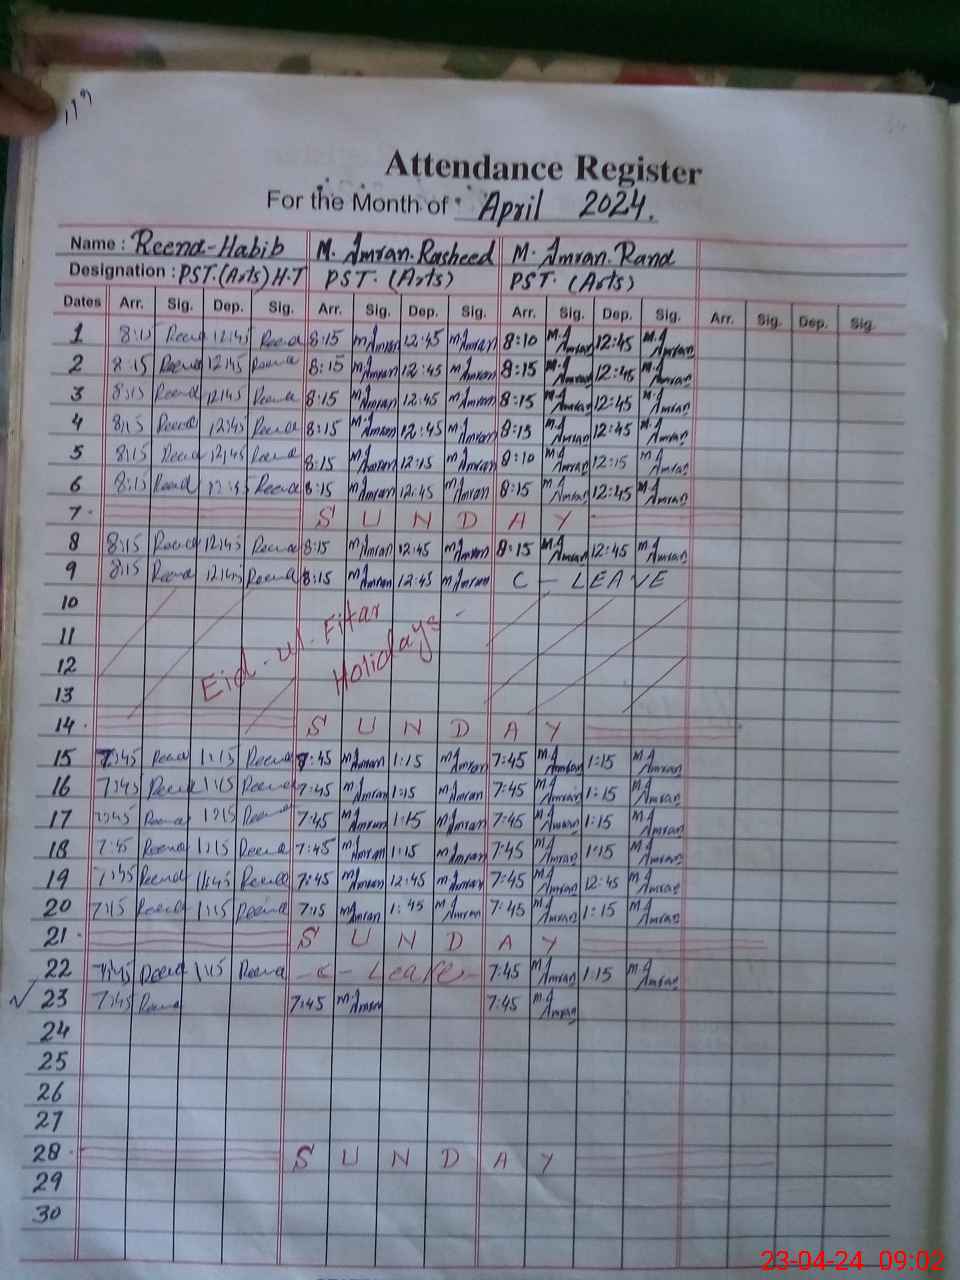 Attendance Register
For the Month of April 2024.
Name : Reena-Habib M. Amran.Rasheed M. Amran.Rand
Designation : PST.(Arts)H.T PST. (Arts) PST. (Arts)
Dates Arr. Sig. Dep. Sig. Arr. Sig. Dep. Sig. Arr. Sig. Dep. Sig. Arr. Sig. Dep. Sig.
1 8:15 Reena 12:45 Reena 8:15 M.Amran 12:45 M.Amran 8:10 M.A Amran 12:45 M.A Amran
2 8:15 Reena 12:45 Reena 8:15 M.Amran 12:45 M.Amran 8:15 M.A Amran 12:45 M.A Amran
3 8:15 Reena 12:45 Reena 8:15 M.Amran 12:45 M.Amran 8:15 M.A Amran 12:45 M.A Amran
4 8:15 Reena 12:45 Reena 8:15 M.Amran 12:45 M.Amran 8:15 M.A Amran 12:45 M.A Amran
5 8:15 Reena 12:45 Reena 8:15 M.Amran 12:15 M.Amran 8:10 M.A Amran 12:15 M.A Amran
6 8:15 Reena 12:45 Reena 8:15 M.Amran 12:45 M.Amran 8:15 M.A Amran 12:45 M.A Amran
7 SUNDAY
8 8:15 Reena 12:45 Reena 8:15 M.Amran 12:45 M.Amran 8:15 M.A Amran 12:45 M.A Amran
9 8:15 Reena 12:45 Reena 8:15 M.Amran 12:45 M.Amran C - LEAVE
10
11 Eid-ul-Fitar
12 Holidays
13
14 SUNDAY
15 7:45 Reena 1:15 Reena 7:45 M.Amran 1:15 M.Amran 7:45 M.A Amran 1:15 M.A Amran
16 7:45 Reena 1:15 Reena 7:45 M.Amran 1:15 M.Amran 7:45 M.A Amran 1:15 M.A Amran
17 7:45 Reena 1:15 Reena 7:45 M.Amran 1:15 M.Amran 7:45 M.A Amran 1:15 M.A Amran
18 7:45 Reena 1:15 Reena 7:45 M.Amran 1:15 M.Amran 7:45 M.A Amran 1:15 M.A Amran
19 7:45 Reena Reena 7:45 M.Amran 12:45 M.Amran 7:45 M.A Amran 12:45 M.A Amran
20 7:15 Reena 1:15 Reena 7:15 M.Amran 1:45 M.Amran 7:45 M.A Amran 1:15 M.A Amran
21 SUNDAY
22 7:45 Reena 1:15 Reena - C - Leave - 7:45 M.A Amran 1:15 M.A Amran
23 7:45 Reena 7:45 M.Amran 7:45 M.A Amran
24
25
26
27
28 SUNDAY
29
30
23-04-24 09:02